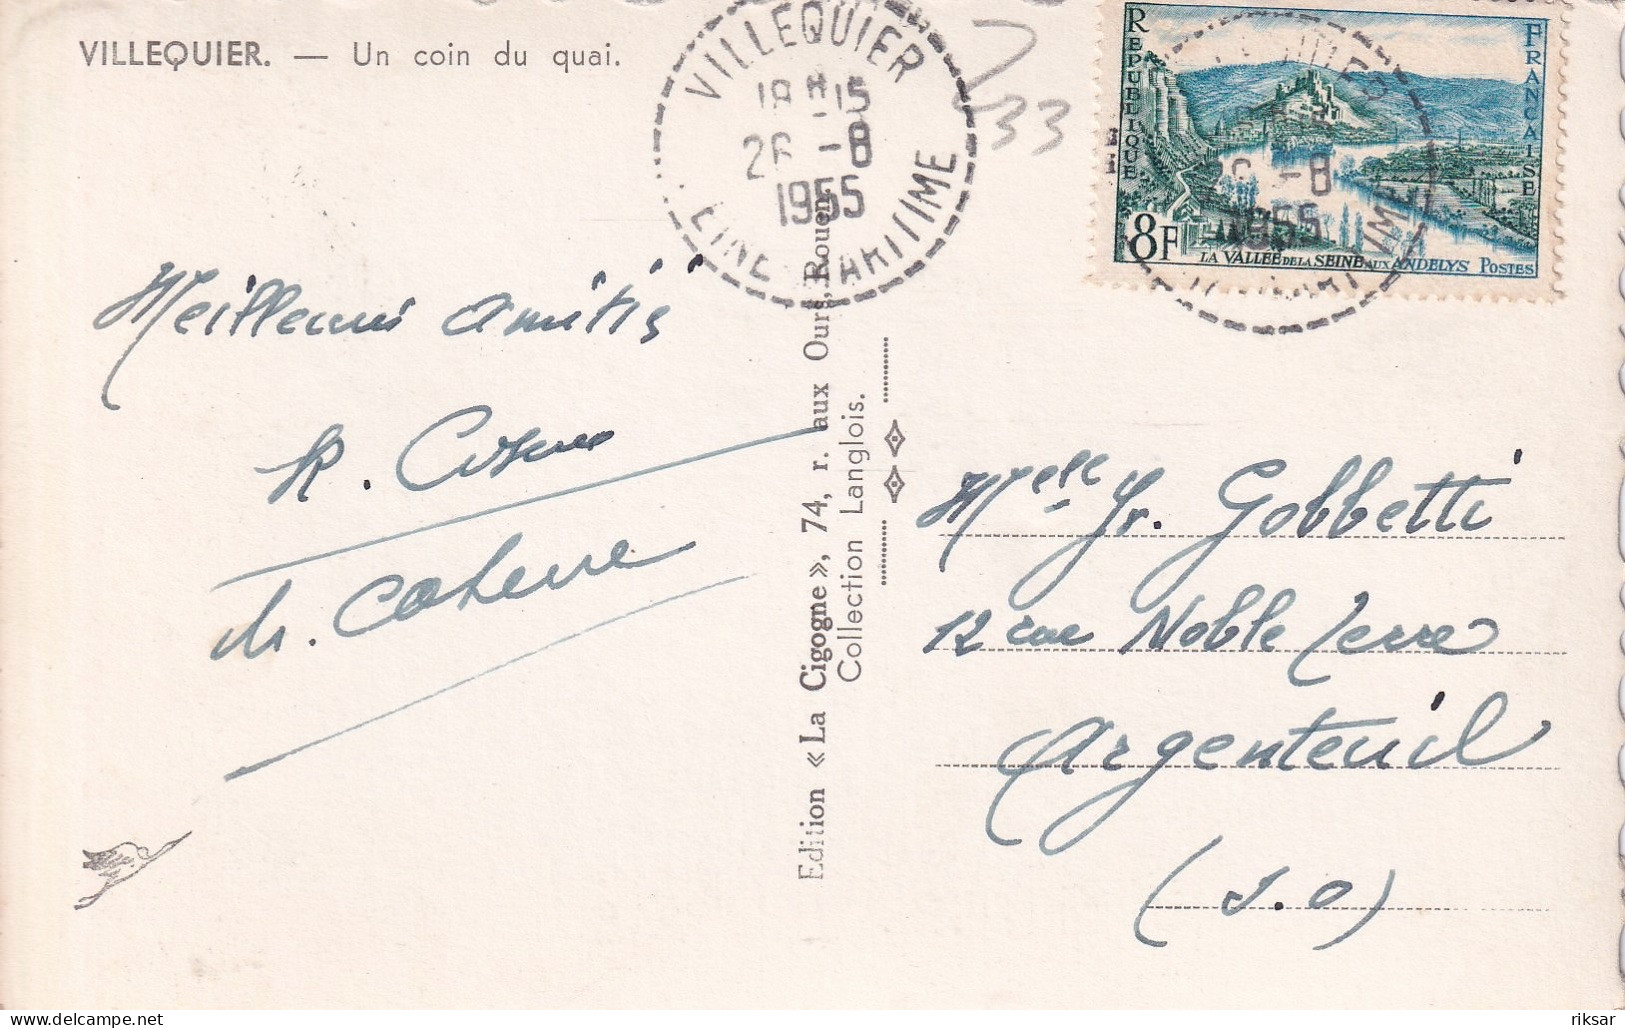 VILLEQUIER. — Un coin du quai.
VILLEQUIER
18 H 15
26 - 8
1955
SEINE MARITIME
33
REPUBLIQUE
FRANCAISE
8F
LA VALLEE DE LA SEINE AUX ANDELYS POSTES
8
1955
Meilleures amitiés
R.
M.
Edition « La Cigogne », 74, r. aux Ours, Rouen.
Collection Langlois.
Melle Yv. Gobbetti
12 rue Noble Terre
Argenteuil
(S.O)
riksar